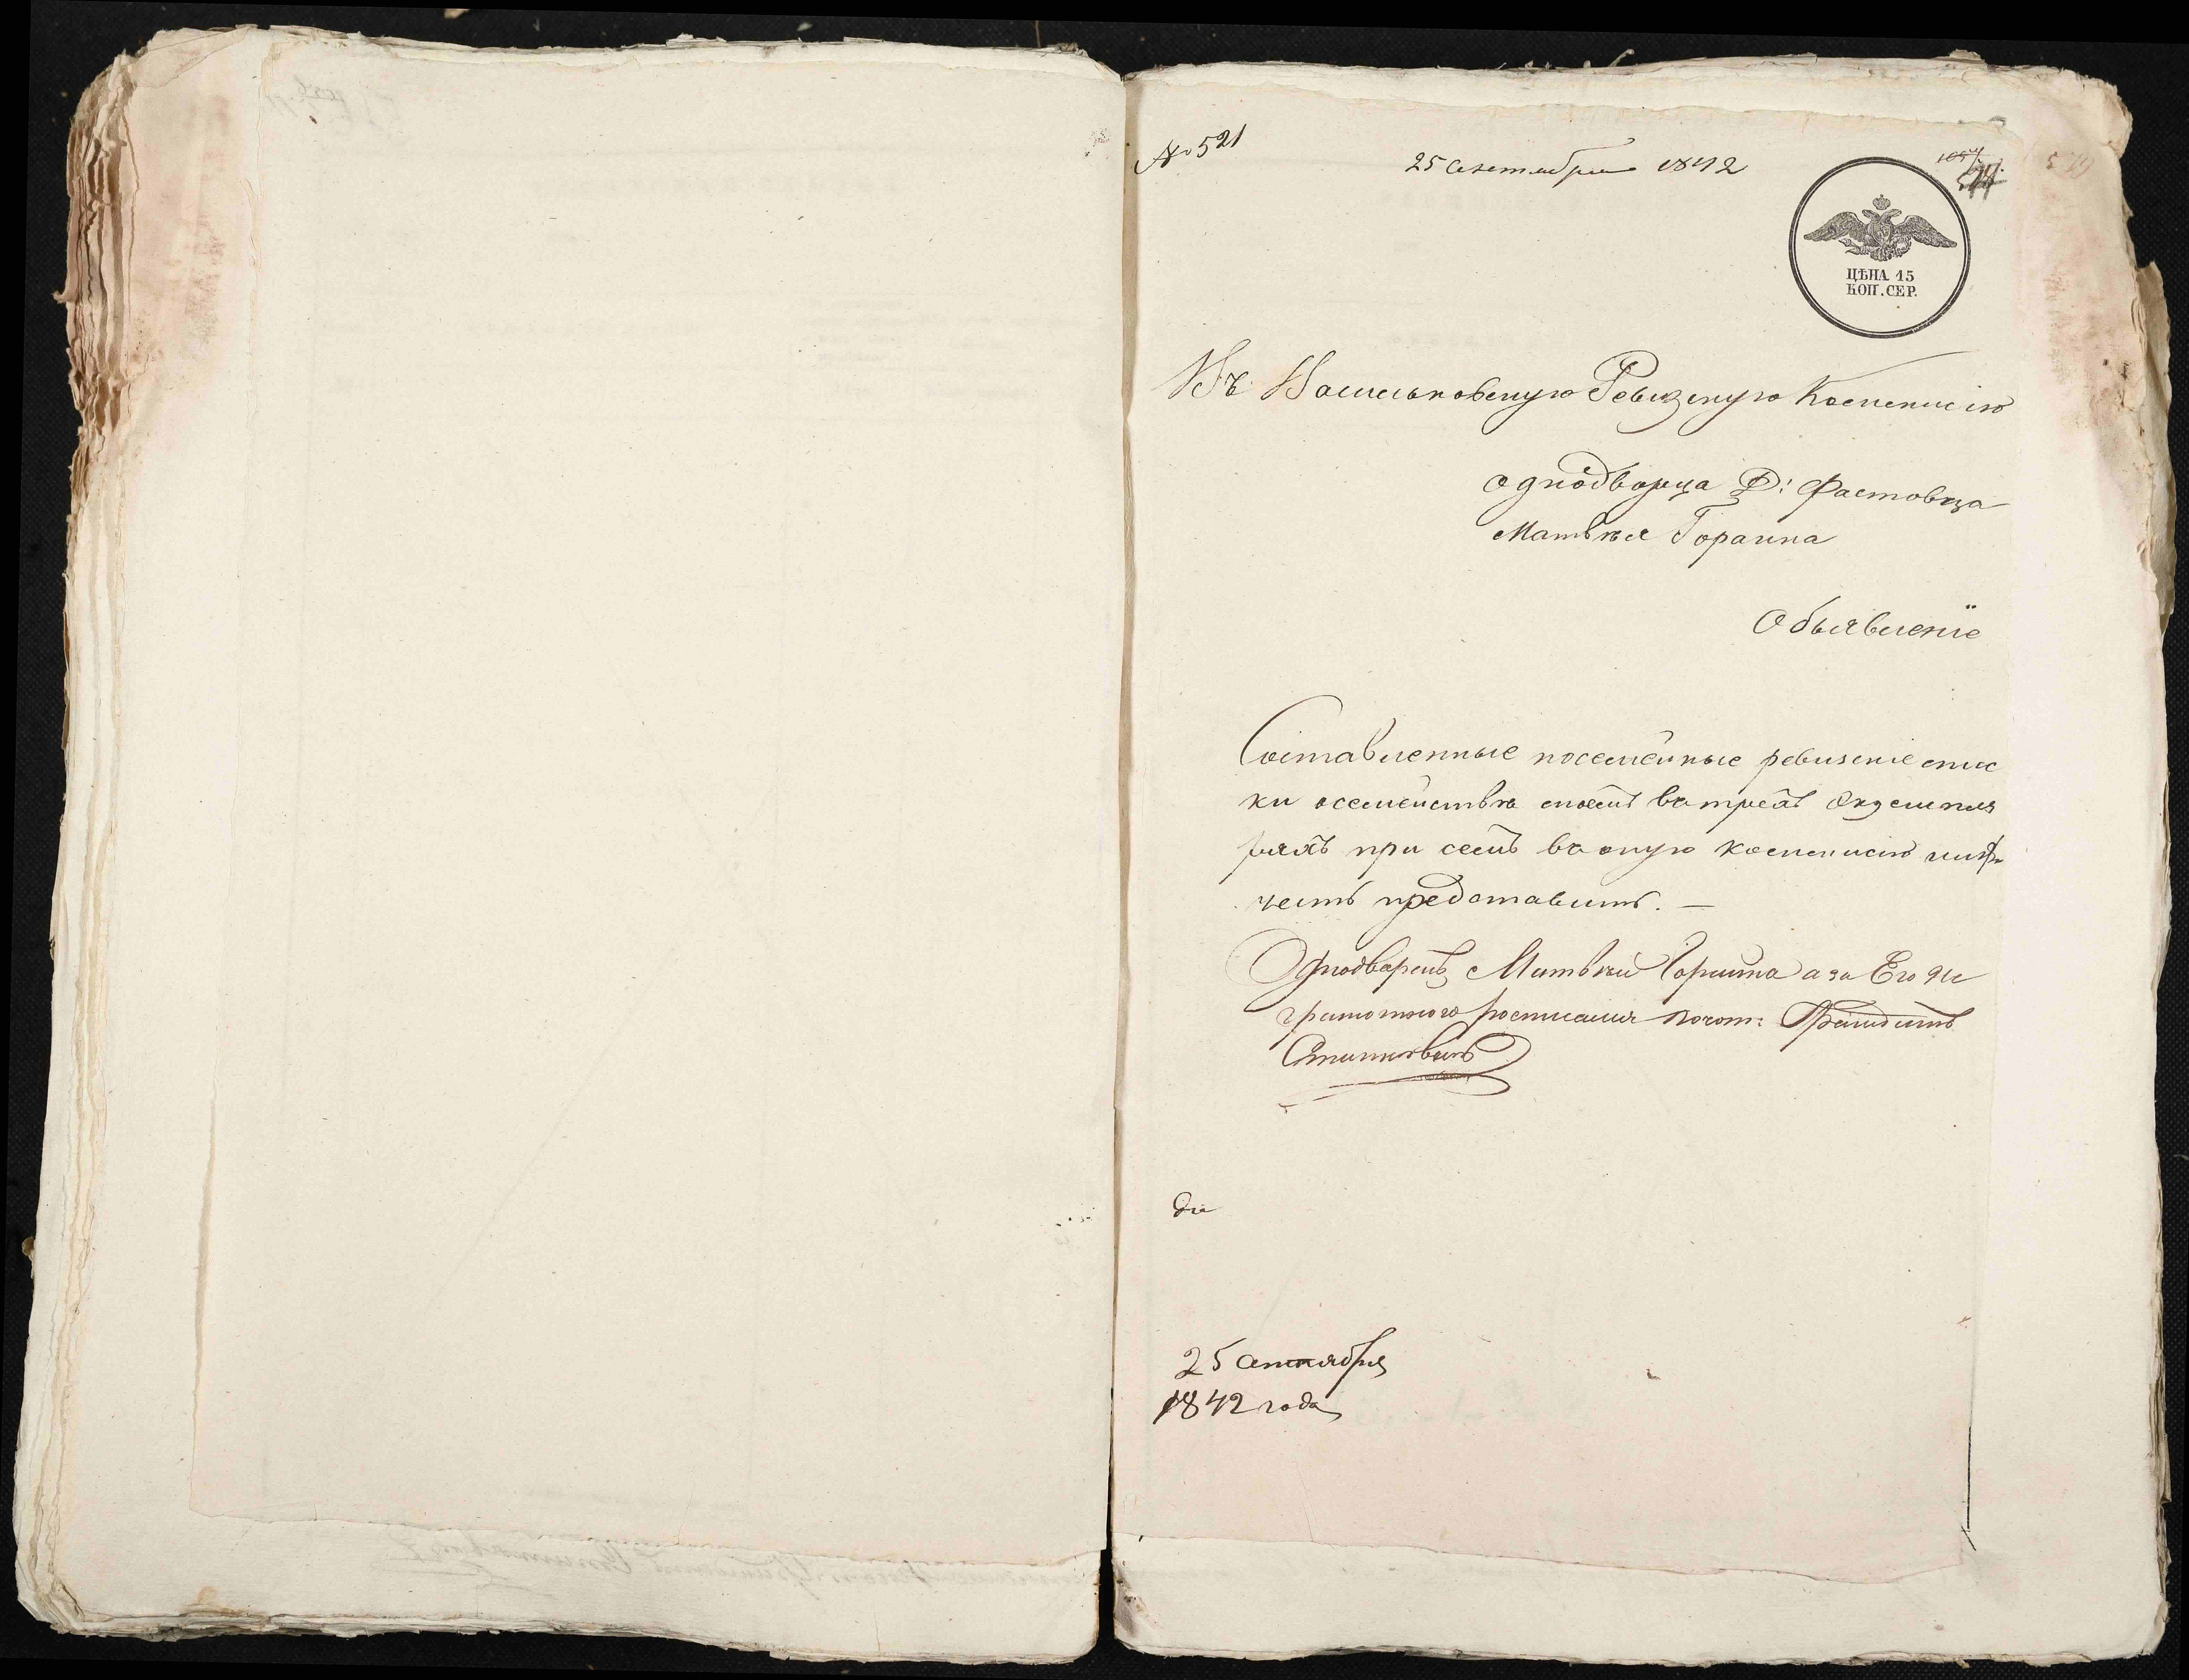 № 521
25 сентября 1842
ЦѢНА 15
КОП. СЕР.
Въ Васильковскую Ревизскую Коммисію
однодворца Д: Фастовца
Матвѣя Гораина
Объявленіе
Составленные посемейные ревизскіе спис
ки о семействѣ моемъ въ трехъ Экземпля
рахъ при семъ въ оную Коммисію имѣю
честь представить. —
Однодварецъ Матвѣй Гораина а за Его не
грамотного росписался
25 сентября
1842 года